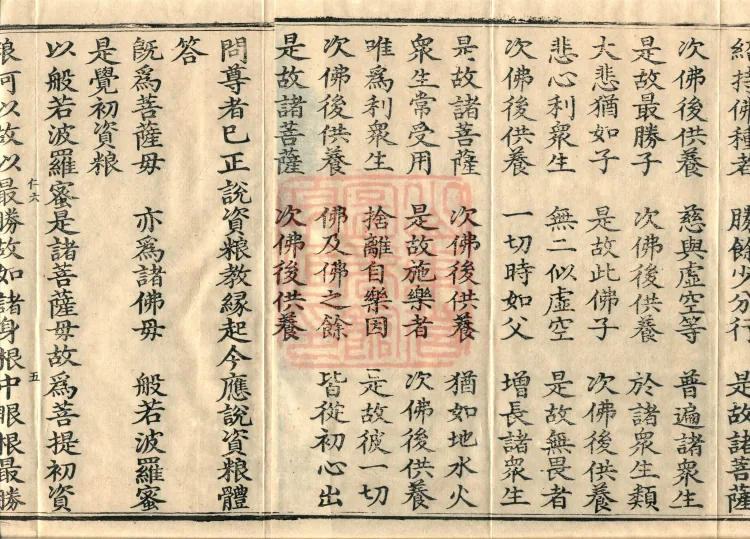 紹持佛種者　勝餘少分行　是故諸菩薩
次佛後供養　慈與虛空等　普遍諸衆生
是故最勝子　次佛後供養　於諸衆生類
大悲猶如子　是故此佛子　次佛後供養
悲心利衆生　無二似虛空　是故無畏者
次佛後供養　一切時如父　增長諸衆生
是故諸菩薩　次佛後供養　猶如地水火
衆生常受用　是故施樂者　次佛後供養
唯爲利衆生　捨離自樂因　是故彼一切
次佛後供養　佛及佛之餘　皆從初心出
是故諸菩薩　次佛後供養
問尊者已正說資粮教緣起今應說資粮體
答
旣爲菩薩母　亦爲諸佛母　般若波羅蜜
是覺初資粮
以般若波羅蜜是諸菩薩母故爲菩提初資
仁六　五
粮何以故以最勝故如諸身根中眼根最勝